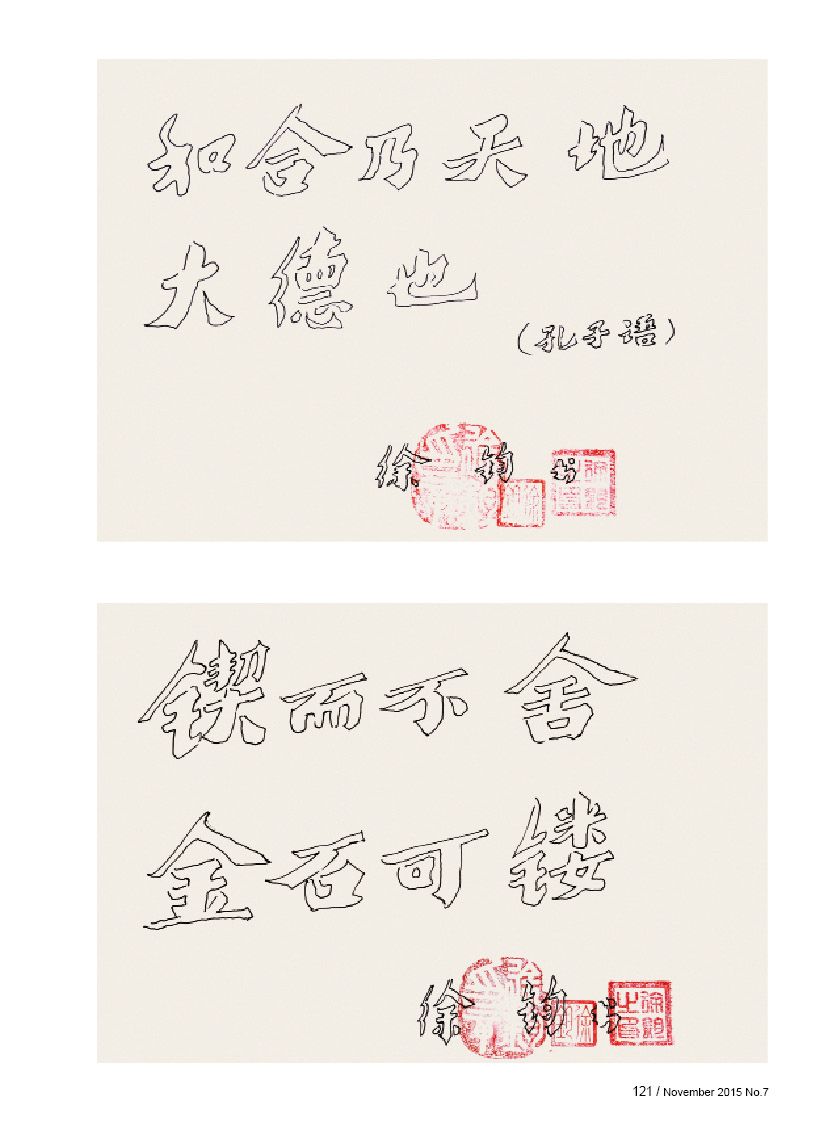 和合乃天地
大德也
（孔子语）
徐钧书
锲而不舍
金石可镂
徐钧书
121 / November 2015 No.7